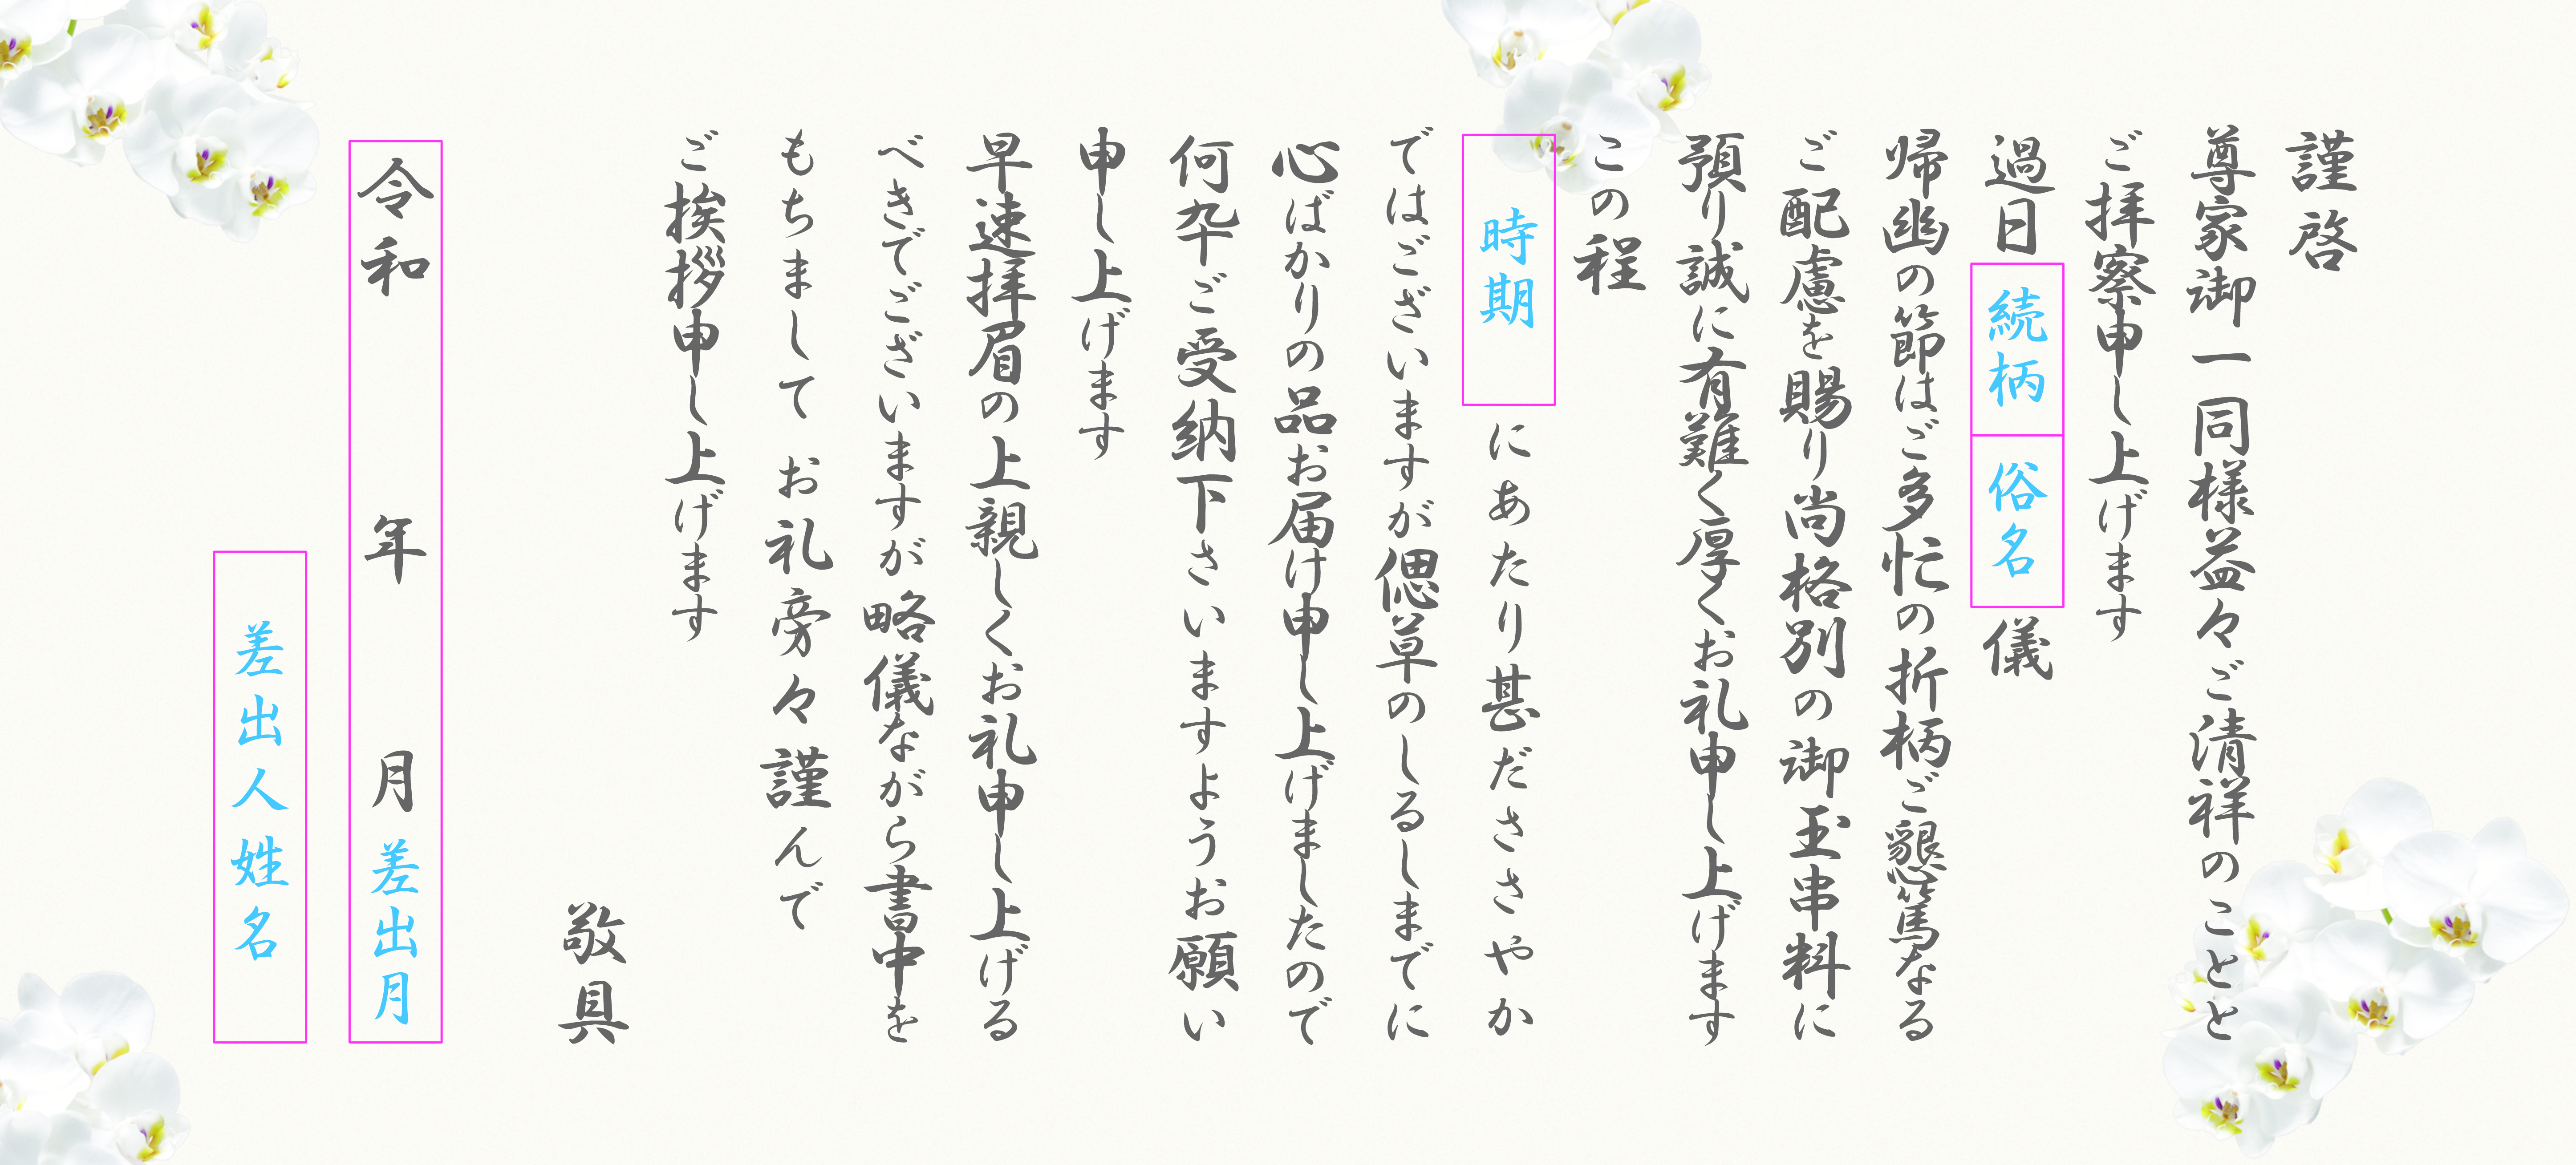 謹啓
尊家御一同様益々ご清祥のことと
ご拝察申し上げます
過日 続柄 俗名 儀
帰幽の節はご多忙の折柄ご懇篤なる
ご配慮を賜り尚格別の御玉串料に
預り誠に有難く厚くお礼申し上げます
この程
時期 にあたり甚だささやか
ではございますが偲草のしるしまでに
心ばかりの品お届け申し上げましたので
何卒ご受納下さいますようお願い
申し上げます
早速拝眉の上親しくお礼申し上げる
べきでございますが略儀ながら書中を
もちまして お礼旁々謹んで
ご挨拶申し上げます
敬具
令和 年 月 差出月
差出人姓名